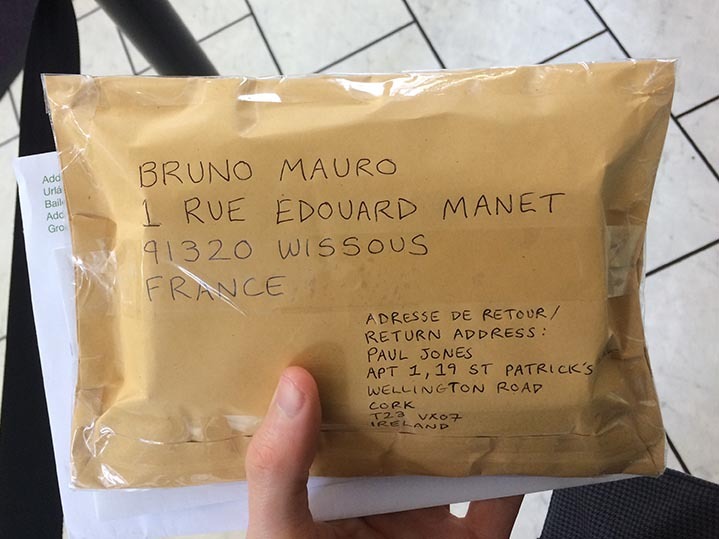 BRUNO MAURO
1 RUE EDOUARD MANET
91320 WISSOUS
FRANCE
ADRESSE DE RETOUR/
RETURN ADDRESS:
PAUL JONES
APT 1, 19 ST PATRICK'S
WELLINGTON ROAD
CORK
T23 VX07
IRELAND
Add
Urlá
Bail
Add
Gro